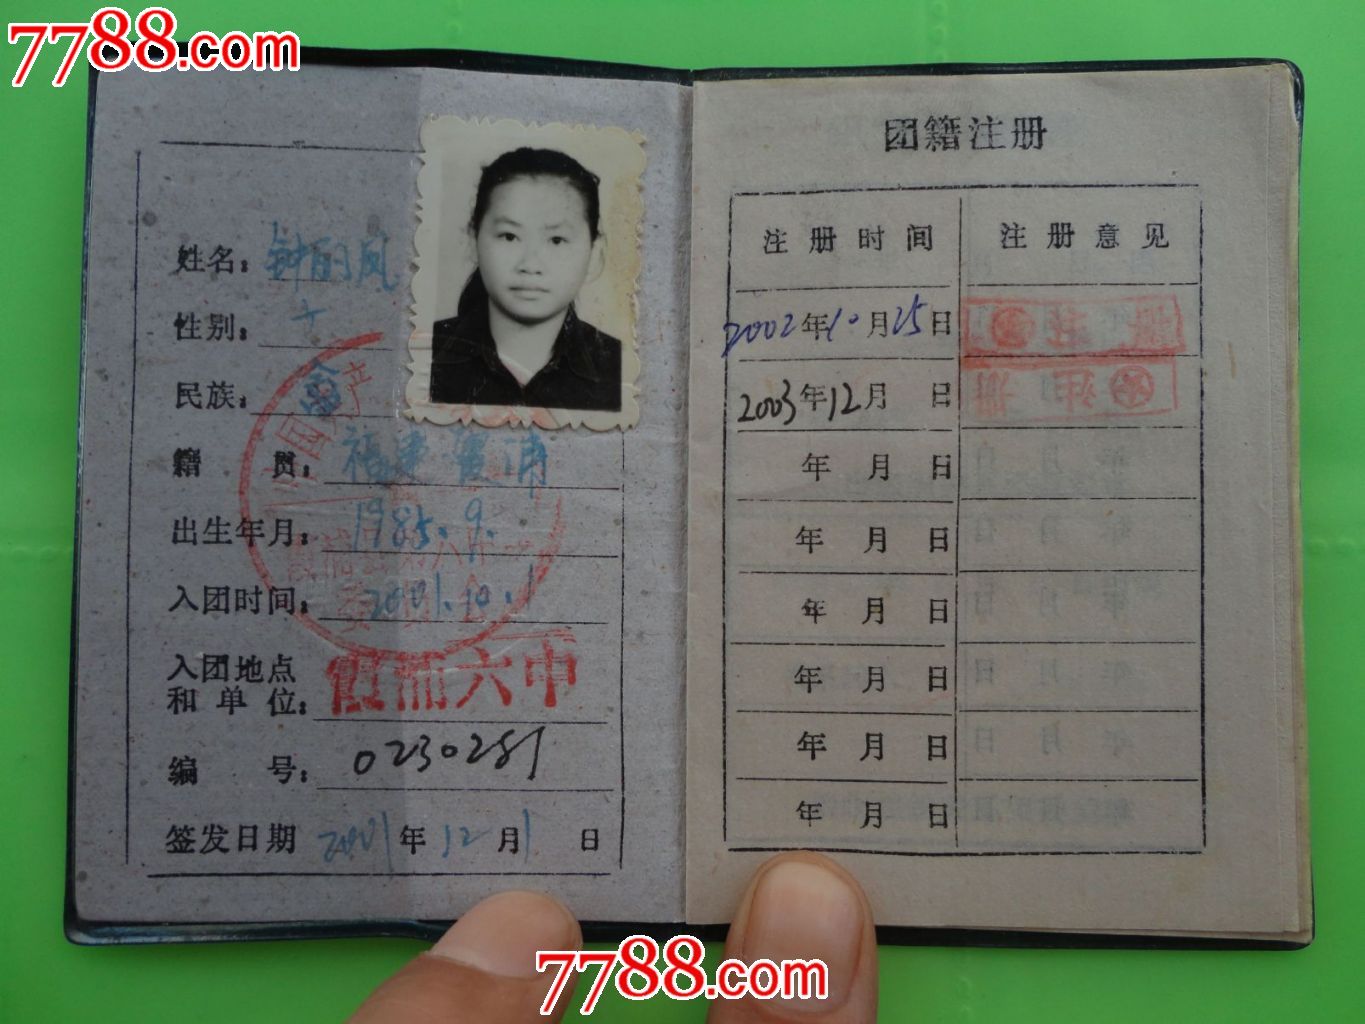 7788.com
姓名：钟丽凤
性别：女
民族：畲
籍 贯：福建霞浦
出生年月：1985.9.
入团时间：2001.10.1
入团地点
和单位：霞浦六中
编 号：0230281
签发日期 2001年12月1日
团籍注册
注册时间 注册意见
2002年10月25日
2003年12月 日 注册
年 月 日
年 月 日
年 月 日
年 月 日
年 月 日
年 月 日
7788.com